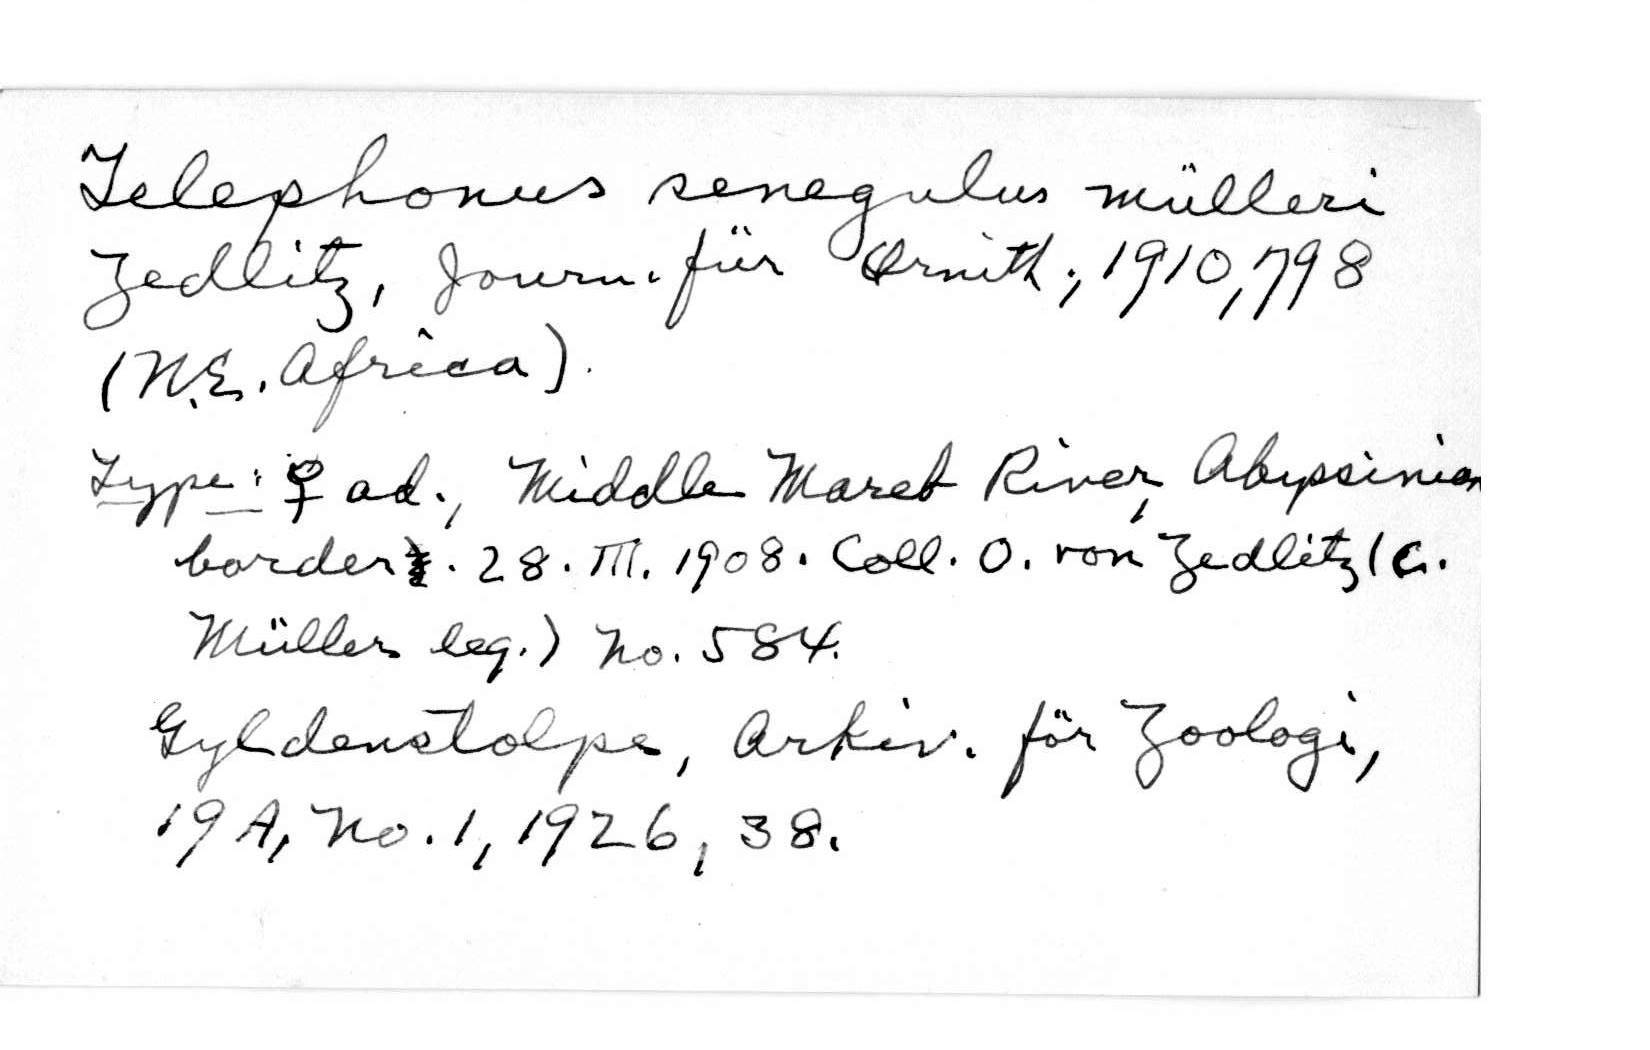 Telephonus senegulus mülleri
Zedlitz, Journ. für Ornith., 1910, 798
(N.E. Africa).
Type: ♀ ad., Middle Mareb River, Abyssinian
border. 28. III. 1908. Coll. O. von Zedlitz (C.
Müller leg.) No. 584.
Gyldenstolpe, Arkiv. för Zoologi,
19A, No. 1, 1926, 38.